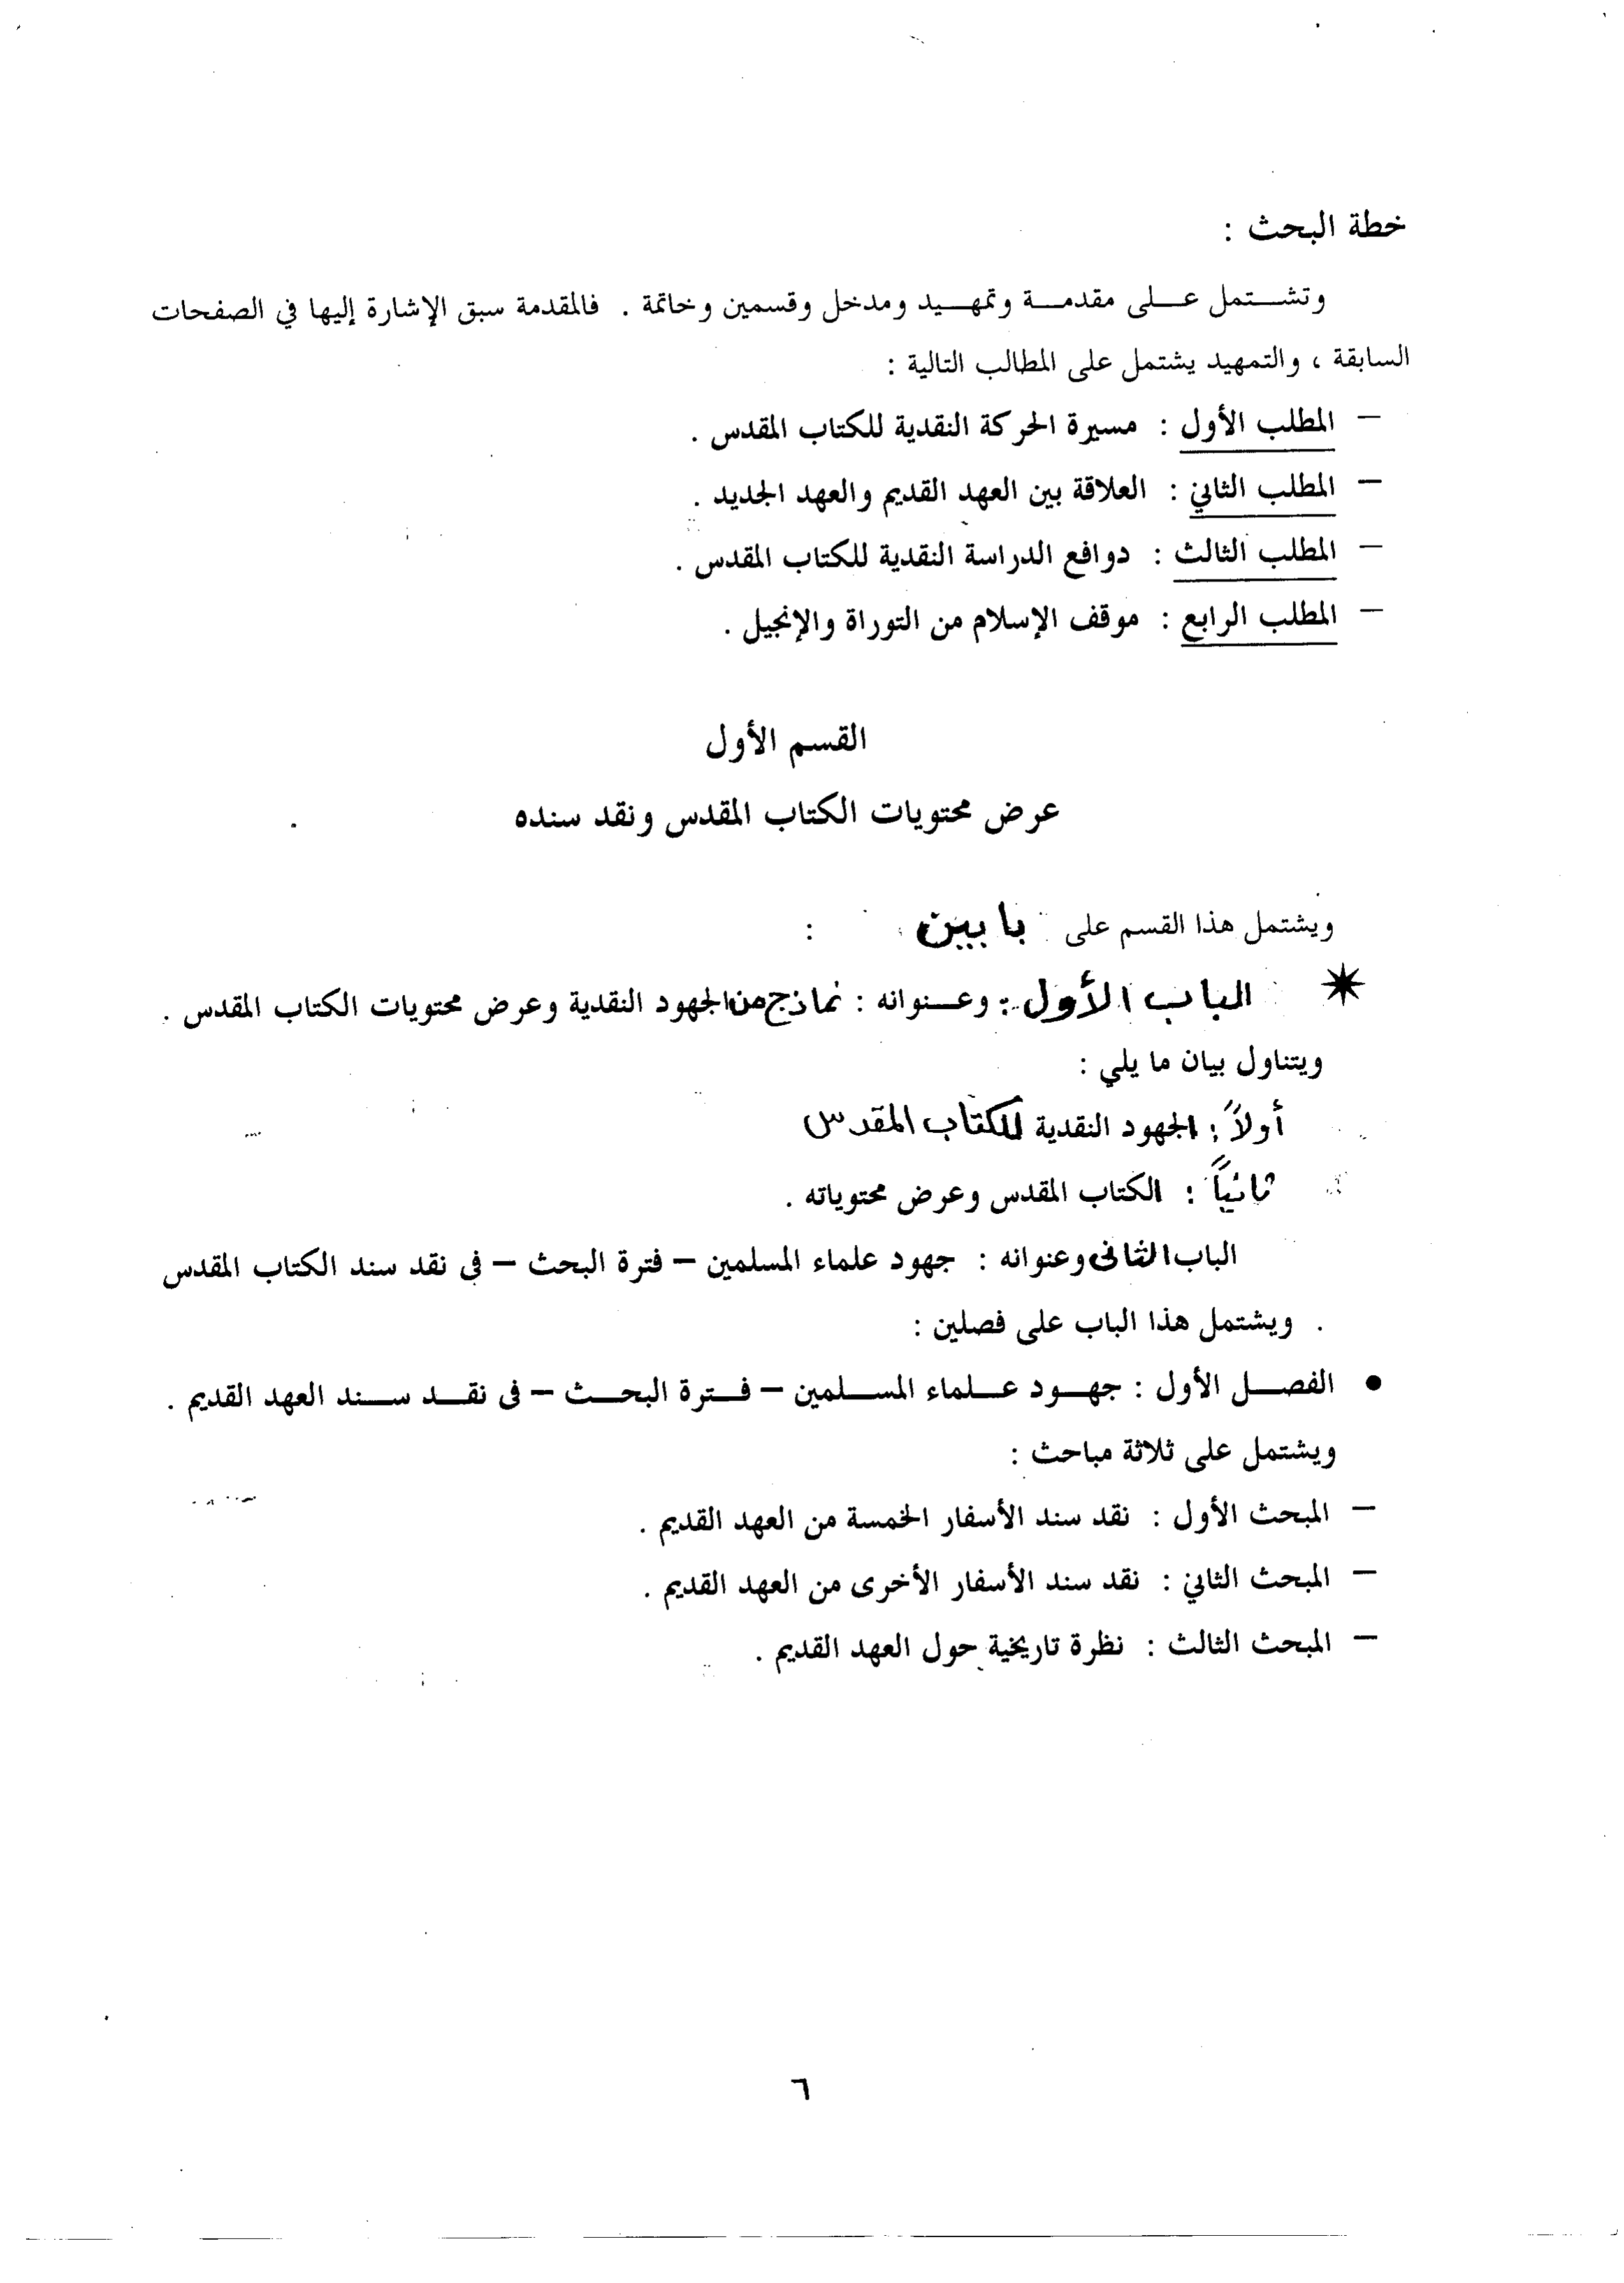 خطة البحث :
وتشتمل على مقدمة وتمهيد ومدخل وقسمين وخاتمة . فالمقدمة سبق الإشارة إليها في الصفحات
السابقة ، والتمهيد يشتمل على المطالب التالية :
– المطلب الأول : مسيرة الحركة النقدية للكتاب المقدس .
– المطلب الثاني : العلاقة بين العهد القديم والعهد الجديد .
– المطلب الثالث : دوافع الدراسة النقدية للكتاب المقدس .
– المطلب الرابع : موقف الإسلام من التوراة والإنجيل .
القسم الأول
عرض محتويات الكتاب المقدس ونقد سنده
ويشتمل هذا القسم على بابين :
✶ الباب الأول : وعنوانه : نماذج من الجهود النقدية وعرض محتويات الكتاب المقدس .
ويتناول بيان ما يلي :
أولاً : الجهود النقدية للكتاب المقدس
ثانياً : الكتاب المقدس وعرض محتوياته .
الباب الثانى وعنوانه : جهود علماء المسلمين – فترة البحث – فى نقد سند الكتاب المقدس
. ويشتمل هذا الباب على فصلين :
● الفصل الأول : جهود علماء المسلمين – فترة البحث – فى نقد سند العهد القديم .
ويشتمل على ثلاثة مباحث :
– المبحث الأول : نقد سند الأسفار الخمسة من العهد القديم .
– المبحث الثاني : نقد سند الأسفار الأخرى من العهد القديم .
– المبحث الثالث : نظرة تاريخية حول العهد القديم .
٦